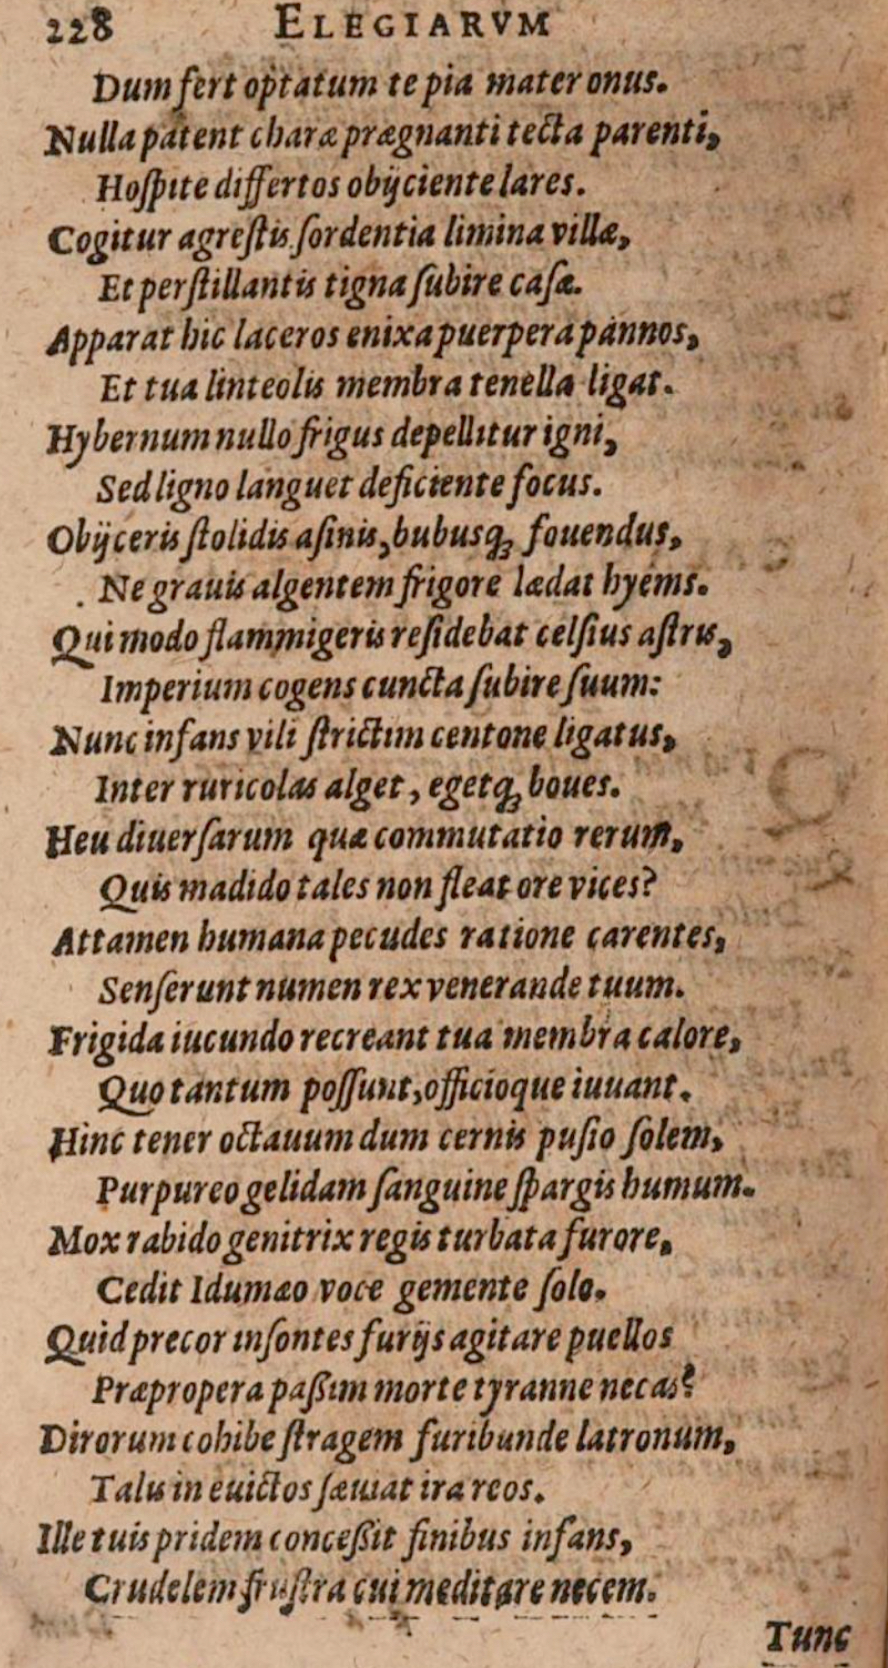 228 ELEGIARVM
Dum fert optatum te pia mater onus.
Nulla patent charæ prægnanti tecta parenti,
Hoſpite differtos obijciente lares.
Cogitur agreſtis ſordentia limina villæ,
Et perſtillantis tigna ſubire caſæ.
Apparat hic laceros enixa puerpera pannos,
Et tua linteolis membra tenella ligat.
Hybernum nullo frigus depellitur igni,
Sed ligno languet deficiente focus.
Obijceris ſtolidis aſinis, bubusq; fouendus,
Ne grauis algentem frigore lædat hyems.
Qui modo flammigeris reſidebat celſius aſtris,
Imperium cogens cuncta ſubire ſuum:
Nunc infans vili ſtrictim centone ligatus,
Inter ruricolas alget, egetq; boues.
Heu diuerſarum quæ commutatio rerum,
Quis madido tales non fleat ore vices?
Attamen humana pecudes ratione carentes,
Senſerunt numen rex venerande tuum.
Frigida iucundo recreant tua membra calore,
Quo tantum poſſunt, officioque iuuant.
Hinc tener octauum dum cernis puſio ſolem,
Purpureo gelidam ſanguine ſpargis humum.
Mox rabido genitrix regis turbata furore,
Cedit Idumæo voce gemente ſolo.
Quid precor inſontes furijs agitare puellos
Præpropera paßim morte tyranne necas?
Dirorum cohibe ſtragem furibunde latronum,
Talis in euictos ſæuiat ira reos.
Ille tuis pridem conceßit finibus infans,
Crudelem fruſtra cui meditare necem.
Tunc